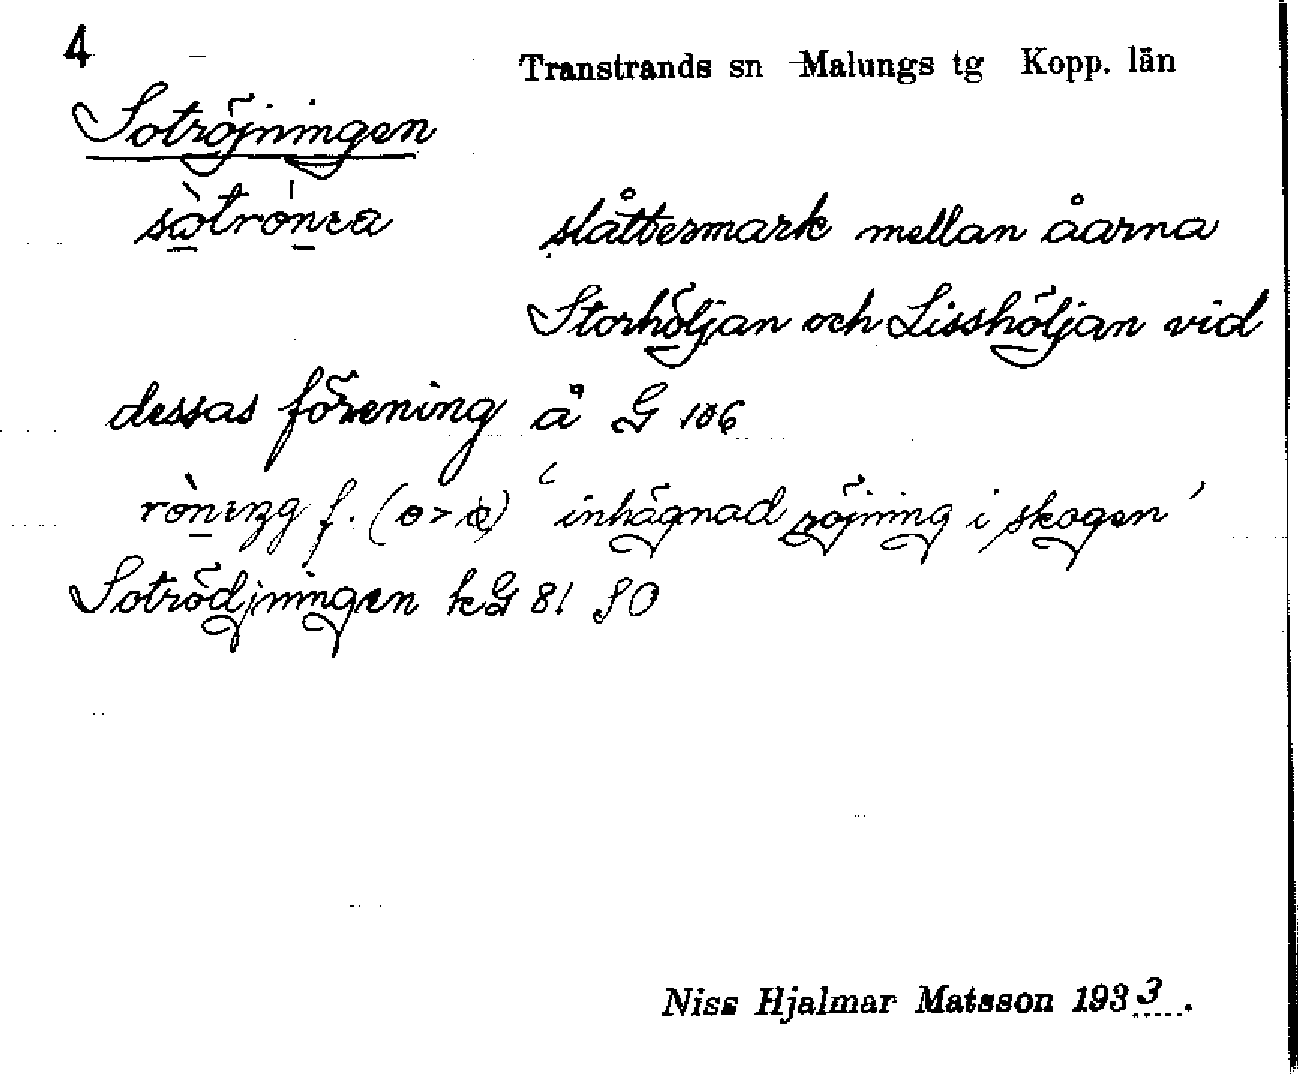 4
Transtrands sn Malungs tg Kopp. län
Sotröjningen
slåttermark mellan åarna
Storhöljan och Lisshöljan vid
dessas förening å G 106
f. (o>ω) 'inhägnad röjning i skogen'
Sotrödjningen kG 81 SO
Niss Hjalmar Matsson 1933.